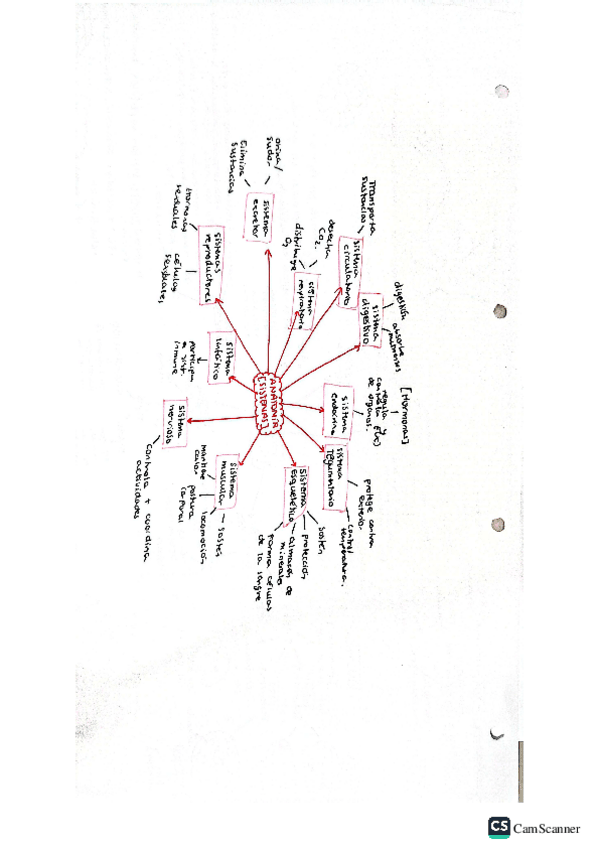 ANATOMÍA
[SISTEMAS]
sistema
digestivo
digestión
absorbe
nutrientes
sistema
circulatorio
Transporta
sustancias
sistema
respiratorio
desecha
CO2.
distribuye
O2
sistema
excretor
orina/
sudor
Elimina
sustancias
sistemas
reproductores
hormonas
sexuales
células
sexuales
sistema
linfático
participa
sist.
inmune
sistema
nervioso
controla + coordina
actividades
sistema
muscular
mantiene
calor
postura
corporal
locomoción
sostén
Sistema
Esquelético
sostén
protección
almacén de
minerales
forma células
de la sangre
sistema
Tegumentario
protege contra
exterior
control
temperatura.
sistema
endocrino
[Hormonas]
regula y
controla
de órganos.
CS CamScanner